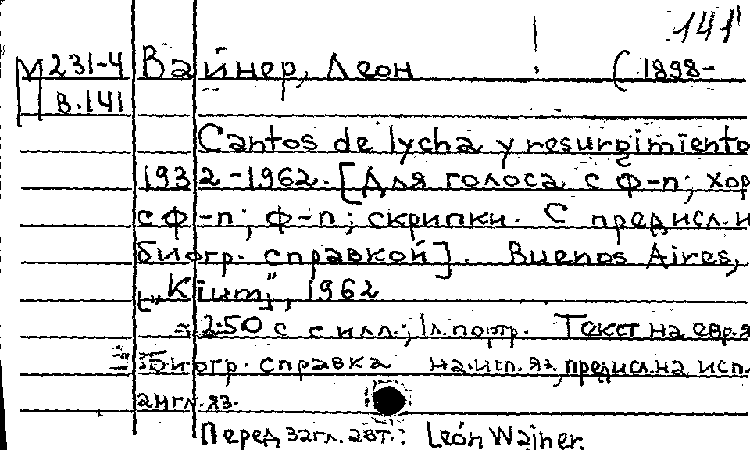 141
М231-4 Вайнер, Леон (1898-
В.141
Cantos de lycha y resurgimiento
1932-1962. [Для голоса с ф-п; хор
с ф-п; ф-п; скрипки. С предисл. и
биогр. справкой]. Buenos Aires,
[„Kium]", 1962
250 с с илл.; 1л. портр. Текст на евр. я
Биогр. справка на исп. яз., предисл. на исп.
англ. яз.
Перед загл. авт.: León Wajner.